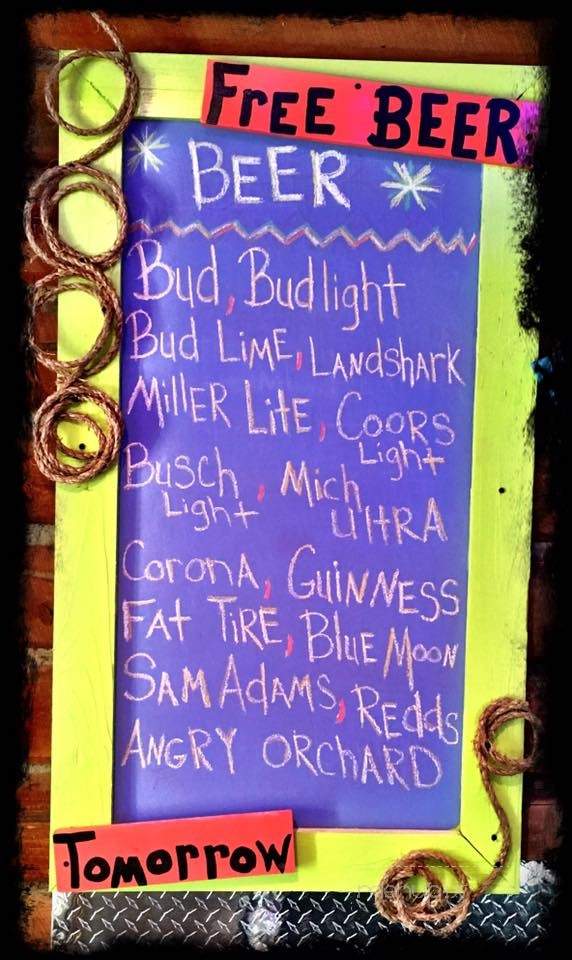 FrEE BEER
BEER
Bud, Budlight
Bud LiME, LANdshArk
MillER LitE, COORS
Light
Busch, Mich
Light ultRA
CoronA, GuiNNESS
FAt TiRE, BluE Moon
SAM AdAMS, REdds
ANGRY ORChARD
Tomorrow